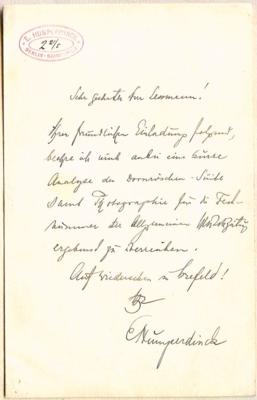 E. HUMPERDINCK
BERLIN
Sehr geehrter Herr Lessmann!
Ihrer freundlichen Einladung folgend,
beehre ich mich anbei eine kurze
Analyse der Dornröschen-Suite
samt Photographie für die Fest-
nummer der Allgemeinen
ergebenst zu überreichen.
Auf Wiedersehen in Crefeld!
EHumperdinck